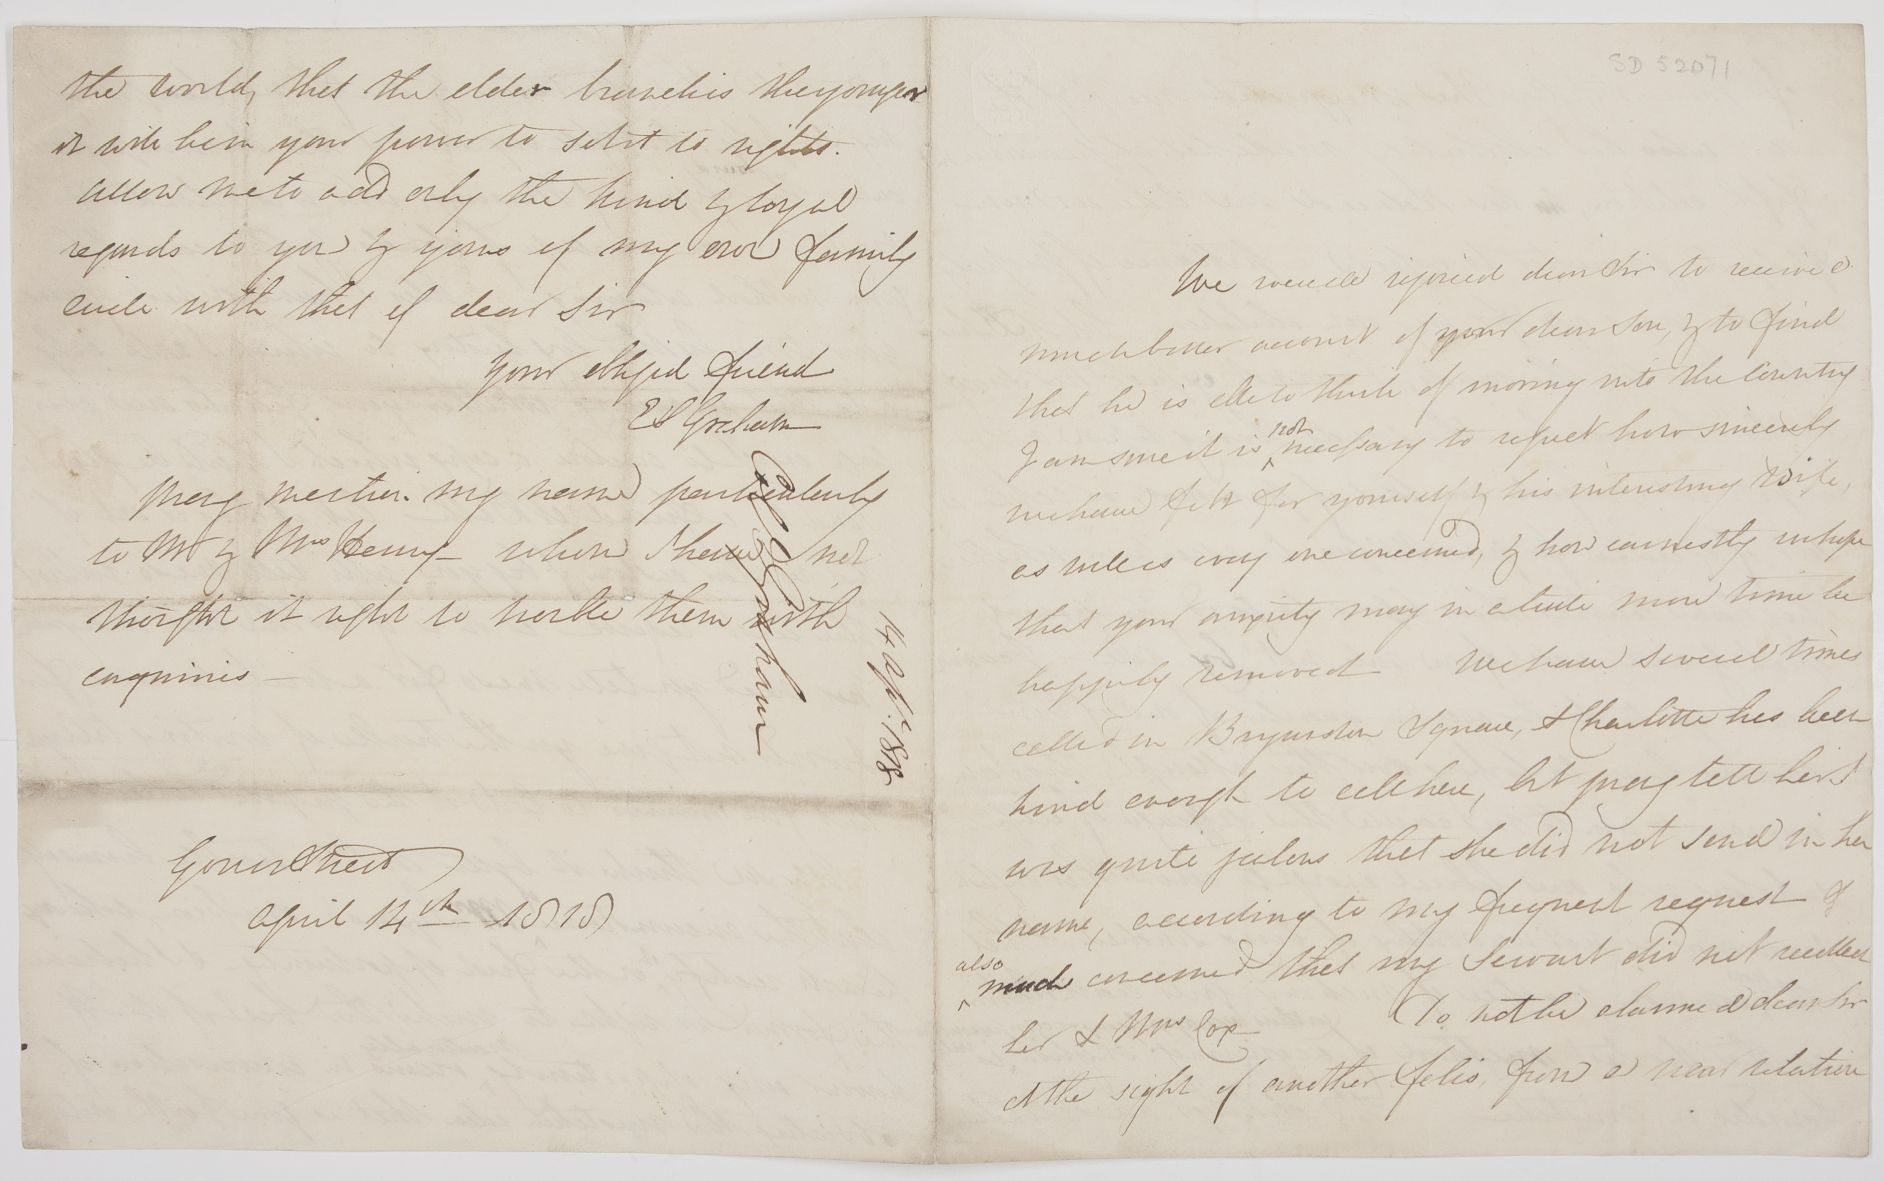 SD 52071
We were all rejoiced dear Sir to receive a
much better account of your dear Son, & to find
that he is able to think of moving into the Country
I am sure it is not necessary to repeat how sincerely
we have felt for yourself & his interesting Wife,
as well as every one concerned, & how earnestly we hope
that your anxiety may in a little more time be
happily removed We have several times
called in Bryanston Square, & Charlotte has been
kind enough to call here, but pray tell her I
was quite jealous that she did not send in her
name, according to my frequent request &
also much concerned that my Servant did not recollect
her & Mrs Cox Do not be alarmed dear Sir
at the sight of another folio, from a near relation
the world, that the elder branch is the younger
it will be in your power to set it to rights.
allow me to add only the kind & loyal
regards to you & yours of my own family
circle with that of dear Sir
Your obliged friend
E S Graham
Pray mention my name particularly
to Mr & Mrs Henry whom I have not
thought it right to trouble them with
enquiries —
Gower Street
April 14th 1818
Graham
14 Apl. 1818